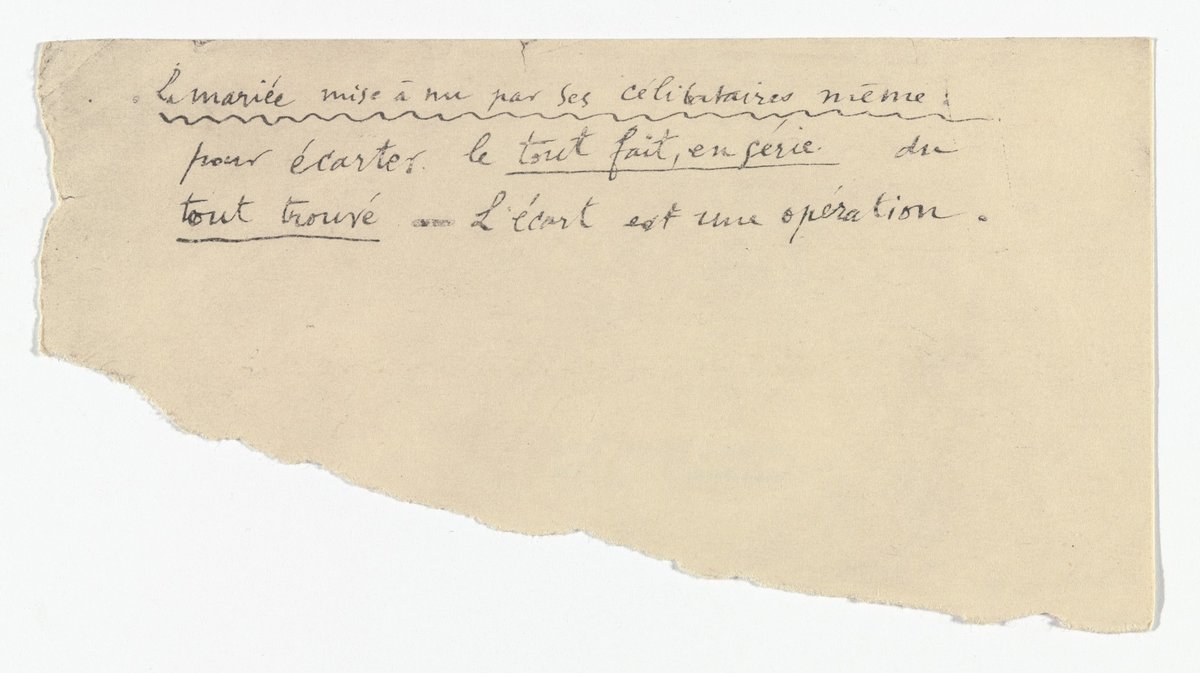 La mariée mise à nu par ses célibataires même :
pour écarter le tout fait, en série du
tout trouvé — L'écart est une opération.